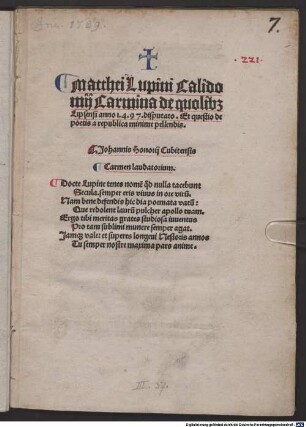 7.
.221.
Matthei Lupini Calido
mij Carmina de quolibz
Lipsensi anno 1.4.9 7. disputato. Et questio de
poetis a republica minime pellendis.
Johannis Honorij Cubitensis
Carmen laudatorium.
Docte Lupine tenes nomē qd nulla tacebunt
Secula. semper eris viuus in ore virū.
Nam bene defendis hic dia poemata vatū:
Que redolent laurū pulcher apollo tuam.
Ergo tibi meritas grates studiosa iuuentus
Pro tam sublimi munere semper agat.
Jamqz vale: et superes longeui Nestoris annos
Tu semper nostre maxima pars anime.